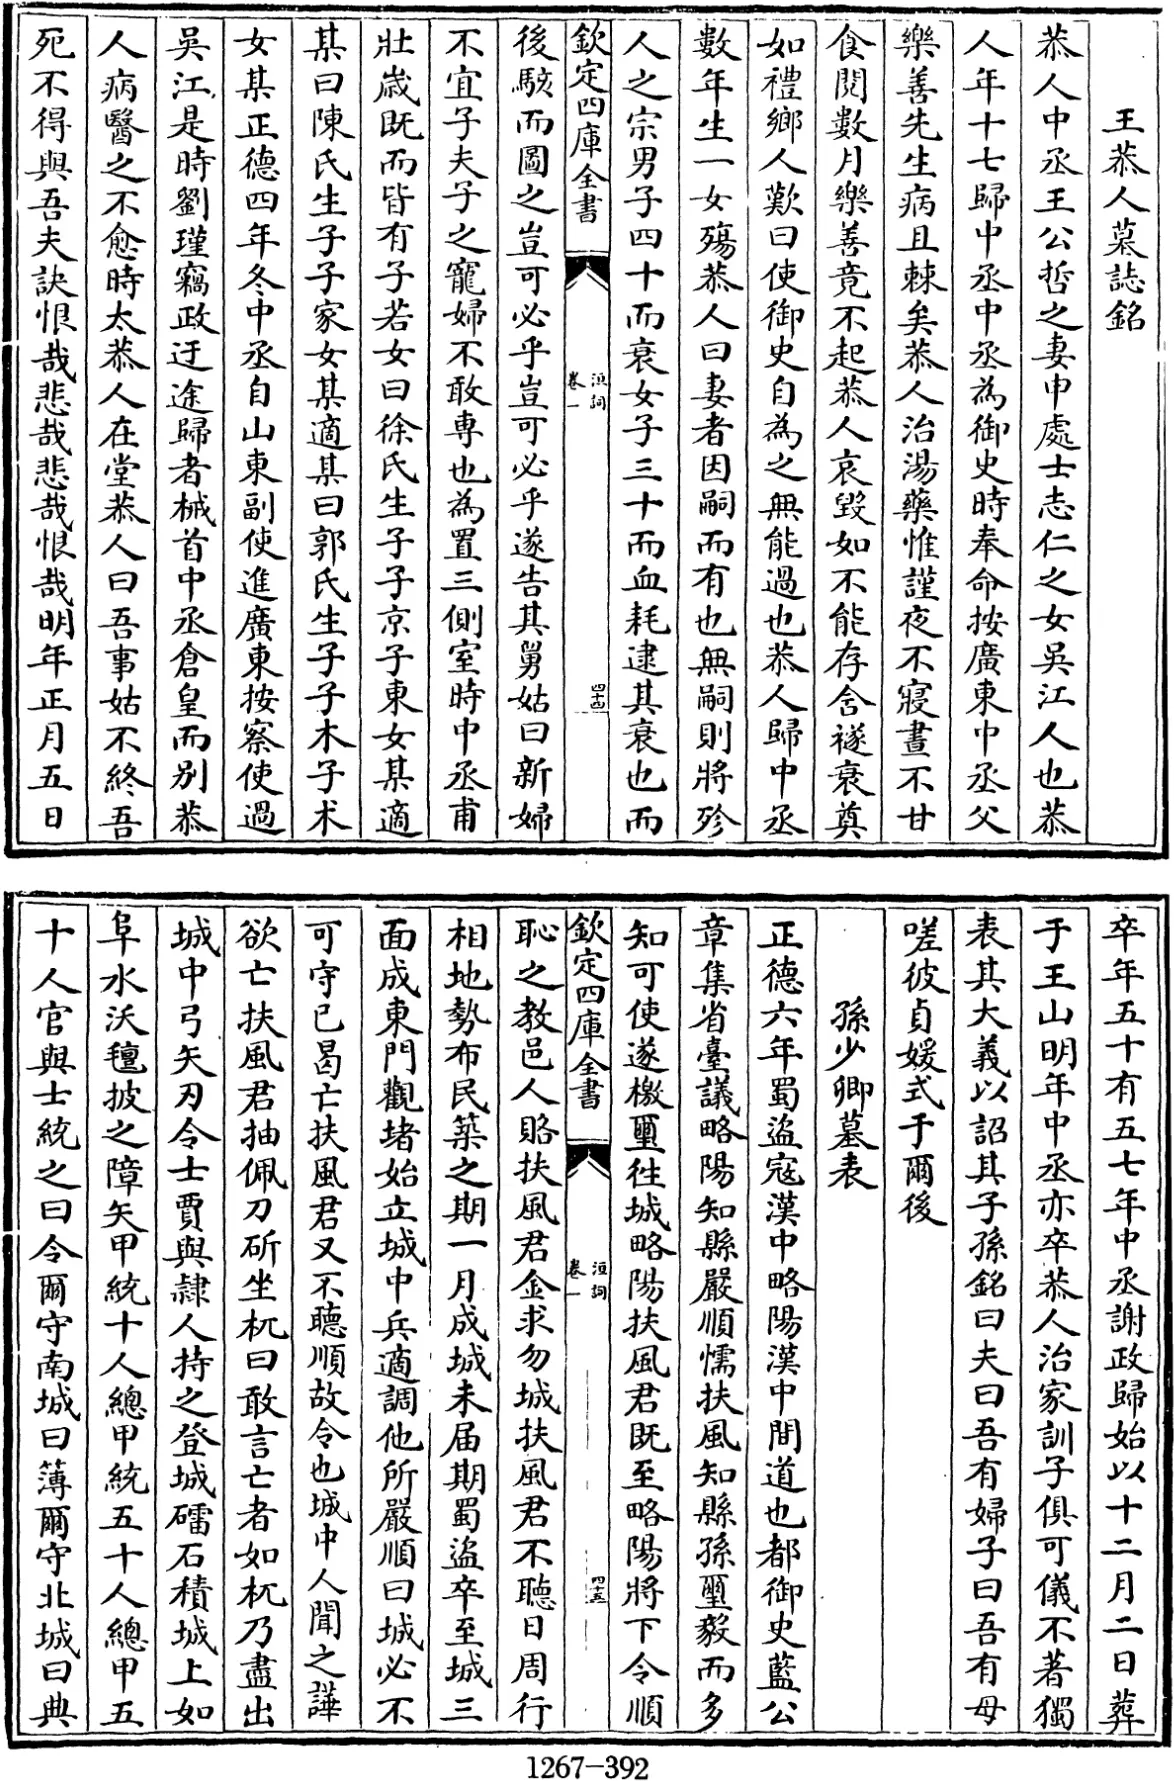 王恭人墓誌銘
恭人中丞王公哲之妻申處士志仁之女吳江人也恭
人年十七歸中丞中丞為御史時奉命按廣東中丞父
樂善先生病且棘矣恭人治湯藥惟謹夜不寢晝不甘
食閱數月樂善竟不起恭人哀毀如不能存含襚衰奠
如禮鄉人歎曰使御史自為之無能過也恭人歸中丞
數年生一女殤恭人曰妻者因嗣而有也無嗣則將殄
人之宗男子四十而衰女子三十而血耗逮其衰也而
欽定四庫全書
洹詞
卷一
四十四
後駭而圖之豈可必乎豈可必乎遂告其舅姑曰新婦
不宜子夫子之寵婦不敢専也為置三側室時中丞甫
壯歳既而皆有子若女曰徐氏生子子京子東女某適
某曰陳氏生子子家女某適某曰郭氏生子子木子术
女某正德四年冬中丞自山東副使進廣東按察使過
吳江是時劉瑾竊政迂途歸者械首中丞倉皇而别恭
人病醫之不愈時太恭人在堂恭人曰吾事姑不終吾
死不得與吾夫訣恨哉悲哉悲哉恨哉明年正月五日
卒年五十有五七年中丞謝政歸始以十二月二日葬
于王山明年中丞亦卒恭人治家訓子俱可儀不著獨
表其大義以詔其子孫銘曰夫曰吾有婦子曰吾有母
嗟彼貞媛式于爾後
孫少卿墓表
正德六年蜀盜寇漢中略陽漢中間道也都御史藍公
章集省臺議略陽知縣嚴順懦扶風知縣孫璽毅而多
知可使遂檄璽往城略陽扶風君既至略陽將下令順
欽定四庫全書
洹詞
卷一
四十五
恥之教邑人賂扶風君金求勿城扶風君不聽日周行
相地勢布民築之期一月成城未届期蜀盜卒至城三
面成東門觀堵始立城中兵適調他所嚴順曰城必不
可守已曷亡扶風君又不聽順故令也城中人聞之譁
欲亡扶風君抽佩刀斫坐杌曰敢言亡者如杌乃盡出
城中弓矢刃令士賈與隷人持之登城礌石積城上如
阜水沃氊披之障矢甲統十人總甲統五十人總甲五
十人官與士統之曰令爾守南城曰簿爾守北城曰典
1267-392